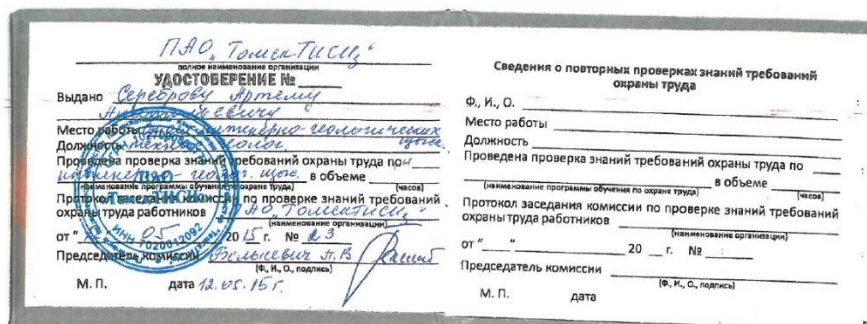 ПАО „ТомскТИСИз"
полное наименование организации
УДОСТОВЕРЕНИЕ №
Выдано Сереброву Артему
Место работы инженерно-геологических
Должность техник геолог. изыс.
Проведена проверка знаний требований охраны труда по
инженерно-геолог. изыс. в объеме
(наименование программы обучения по охране труда) (часов)
Протокол заседания комиссии по проверке знаний требований
охраны труда работников ПАО „ТомскТИСИз"
(наименование организации)
от " 05 2015 г. № 23
Председатель комиссии Белькевич П.В
(Ф., И., О., подпись)
М. П. дата 12.05.15г.
ПАО
«ТомскТИСИз»
ИНН 7020012092
Сведения о повторных проверках знаний требований
охраны труда
Ф., И., О.
Место работы
Должность
Проведена проверка знаний требований охраны труда по
в объеме
(наименование программы обучения по охране труда) (часов)
Протокол заседания комиссии по проверке знаний требований
охраны труда работников
(наименование организации)
от " " 20 г. №
Председатель комиссии
(Ф., И., О., подпись)
М. П. дата